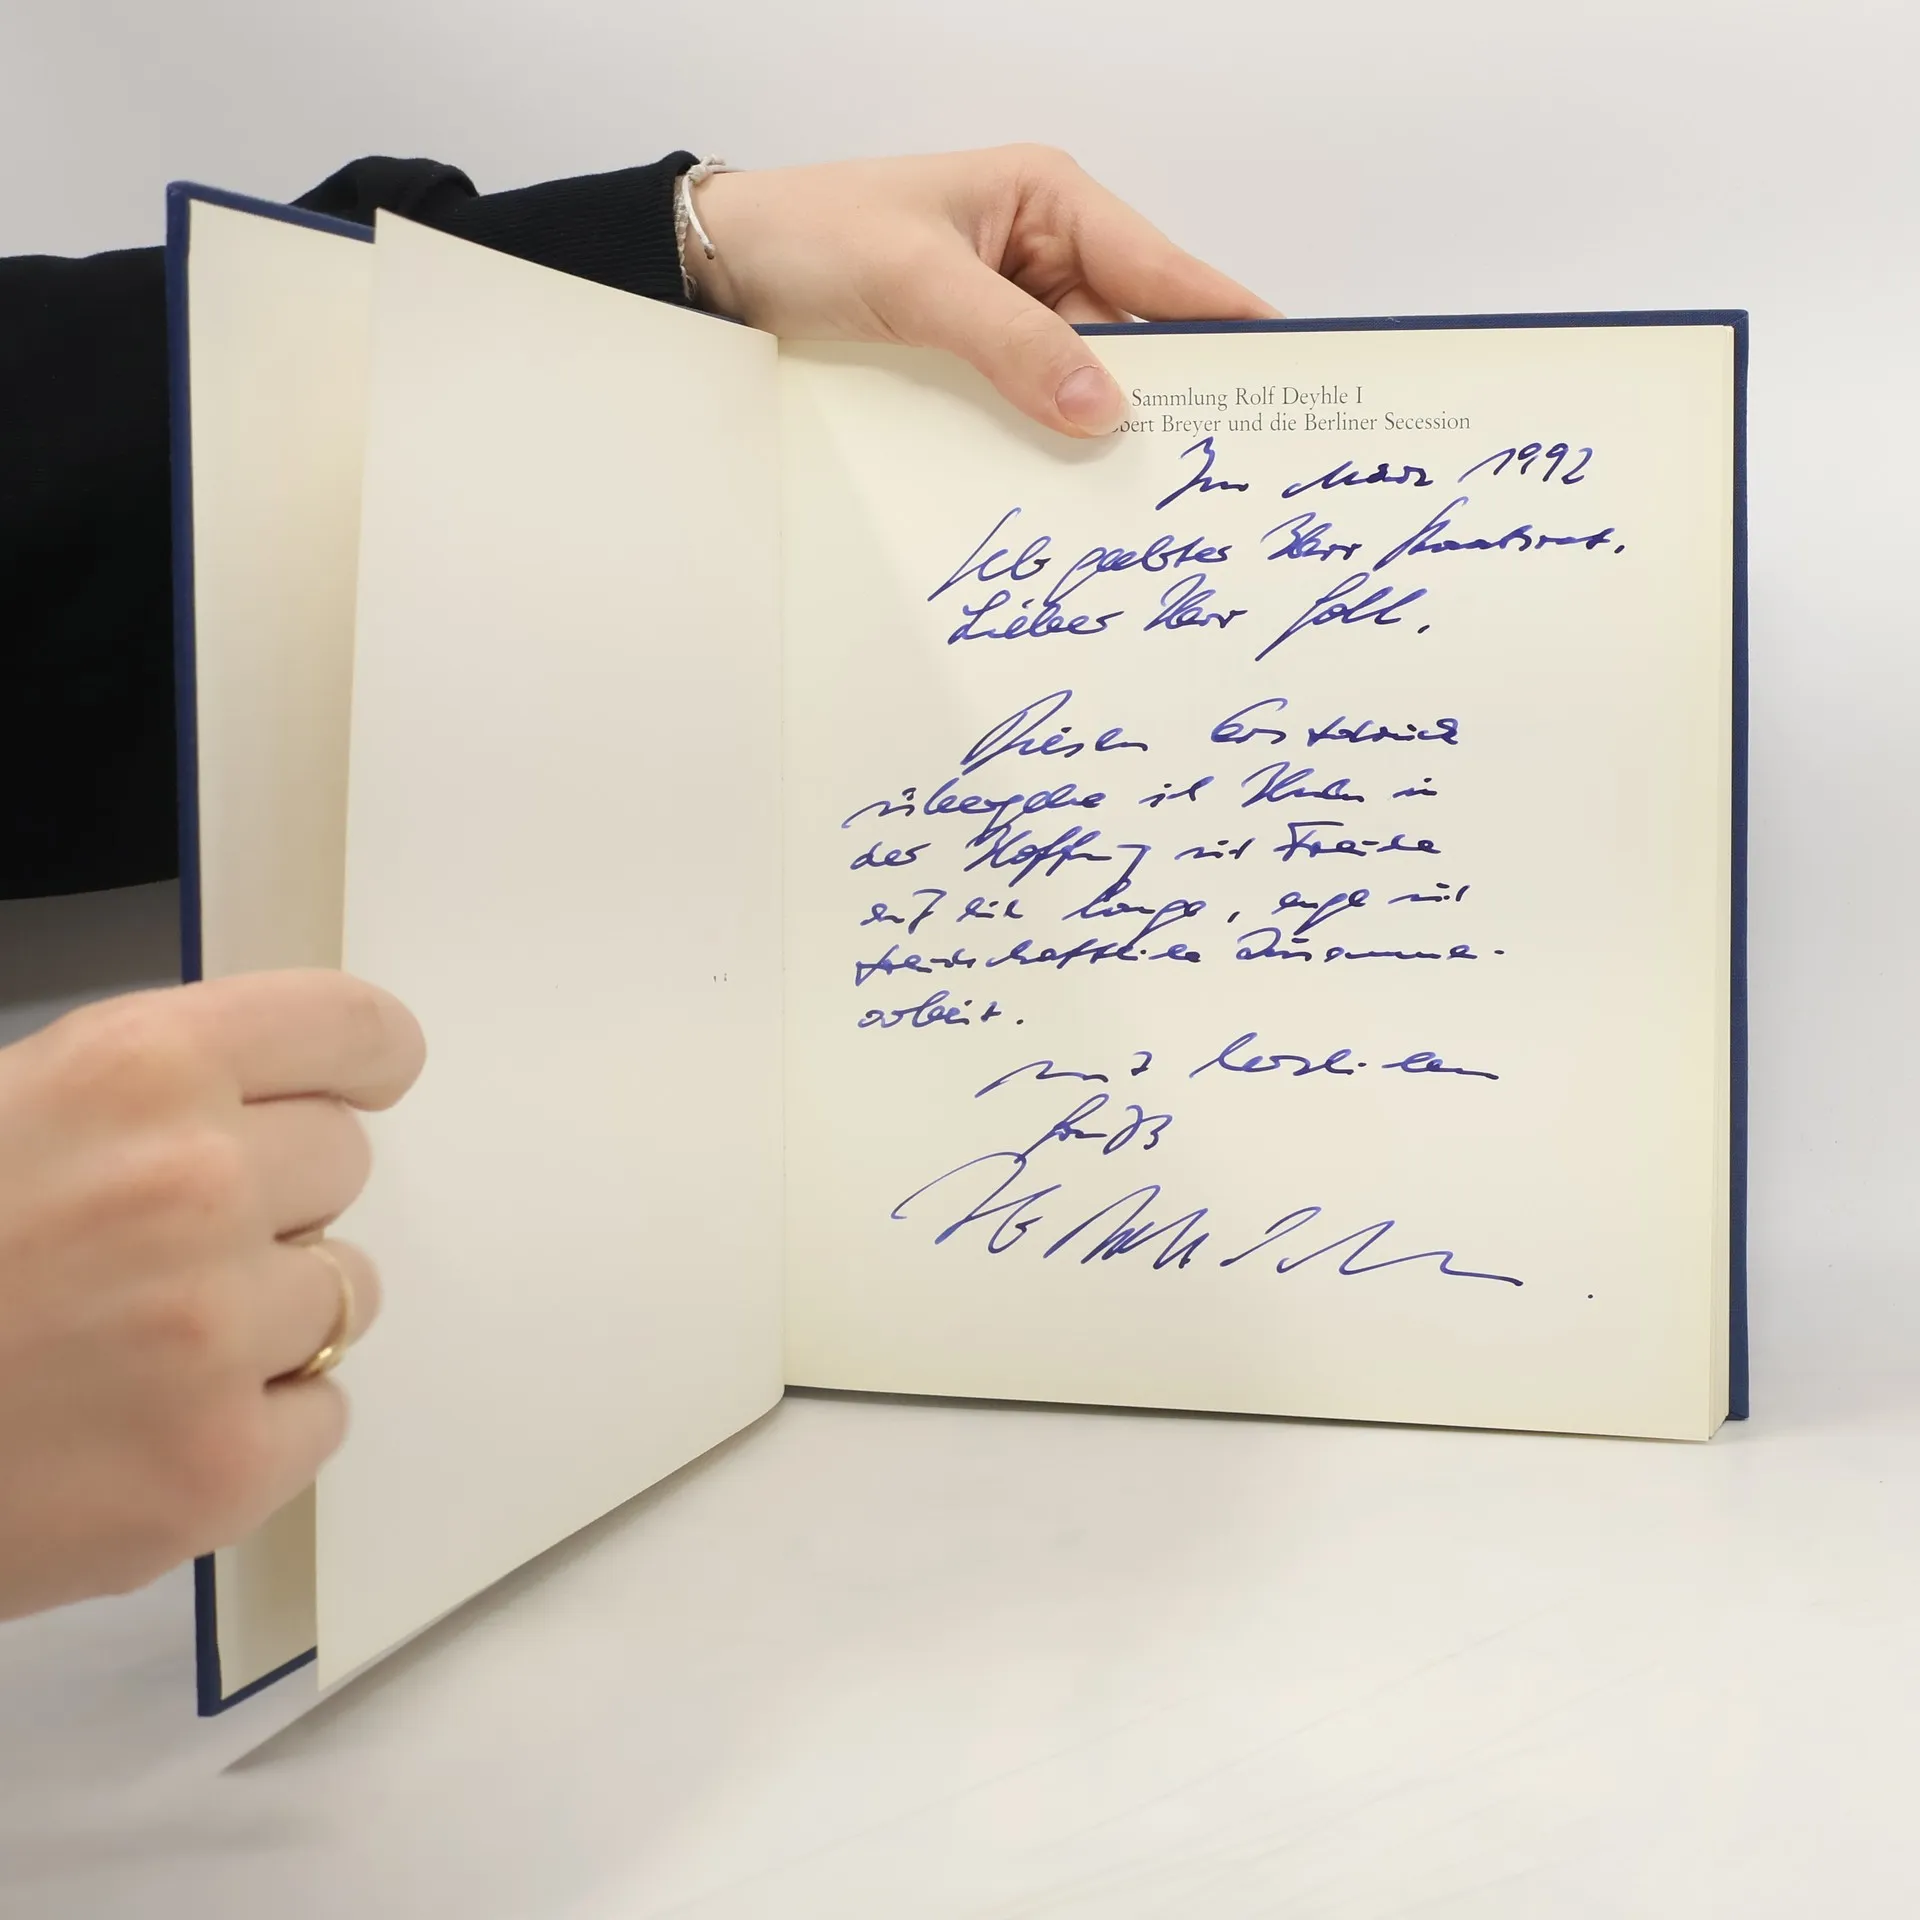 Sammlung Rolf Deyhle I
bert Breyer und die Berliner Secession
Im März 1992
geehrter Herr Staatsrat,
Lieber Herr Goll,
Diesen Erstdruck
übergebe ich Ihnen in
der Hoffnung und Freude
auf eine lange, enge und
freundschaftliche Zusammen-
arbeit.
mit herzlichem
Gruß